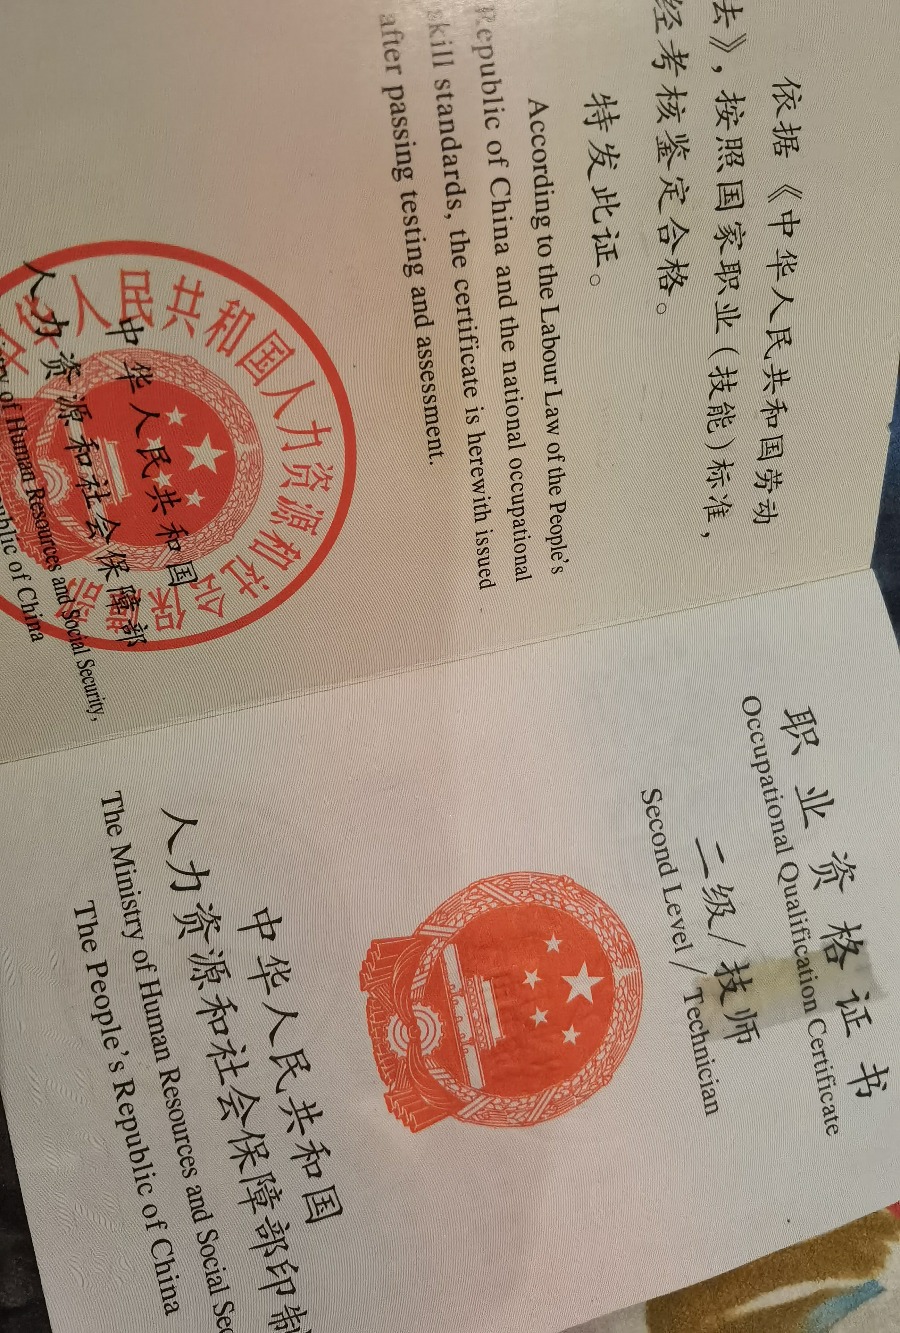 依据《中华人民共和国劳动
法》，按照国家职业（技能）标准，
经考核鉴定合格。
特发此证。
According to the Labour Law of the People's
Republic of China and the national occupational
skill standards, the certificate is herewith issued
after passing testing and assessment.
中华人民共和国人力资源和社会保障部
中华人民共和国
人力资源和社会保障部
of Human Resources and Social Security,
of China
职业资格证书
Occupational Qualification Certificate
二级/技师
Second Level / Technician
中华人民共和国
人力资源和社会保障部印制
The Ministry of Human Resources and Social
The People's Republic of China